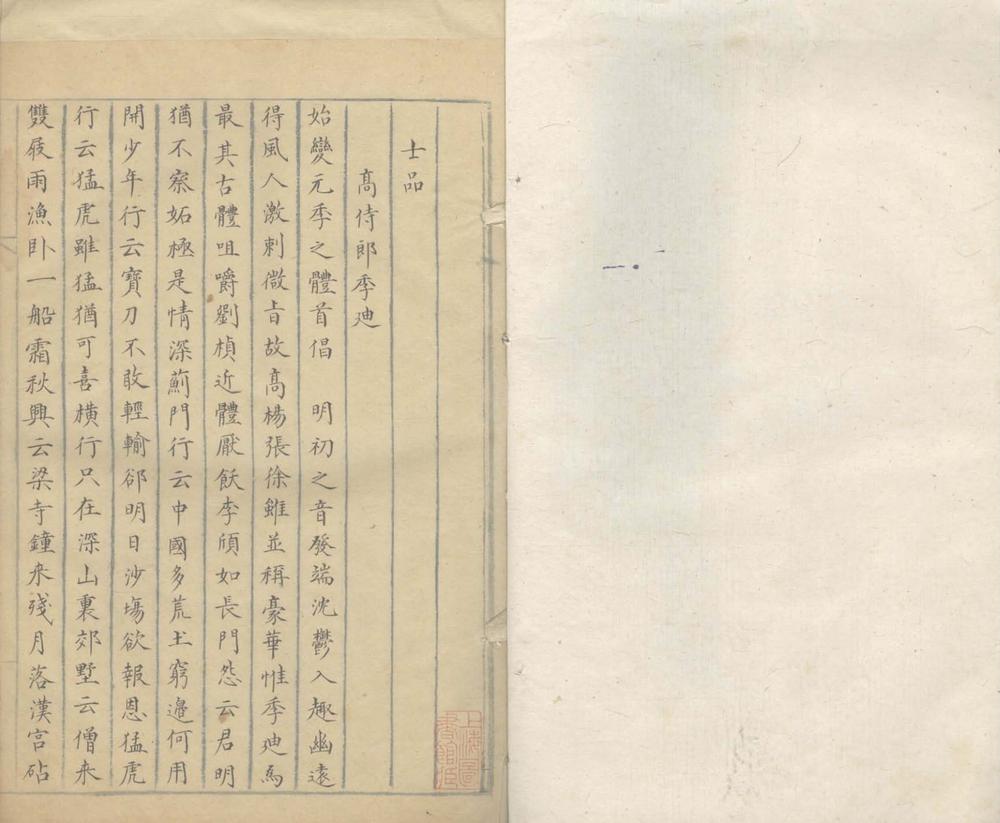 士品
高侍郎季迪
始變元季之體首倡 明初之音發端沈鬱入趣幽遠
得風人激刺微㫖故高楊張徐雖並稱豪華惟季迪為
最其古體咀嚼劉楨近體厭飫李頎如長門怨云君明
猶不察妬極是情深薊門行云中國多荒土窮邊何用
開少年行云寶刀不敢輕輸郤明日沙塲欲報恩猛虎
行云猛虎雖猛猶可喜橫行只在深山裏郊墅云僧来
雙屐雨漁卧一船霜秋興云梁寺鐘来殘月落漢宫砧
上海圖書館藏